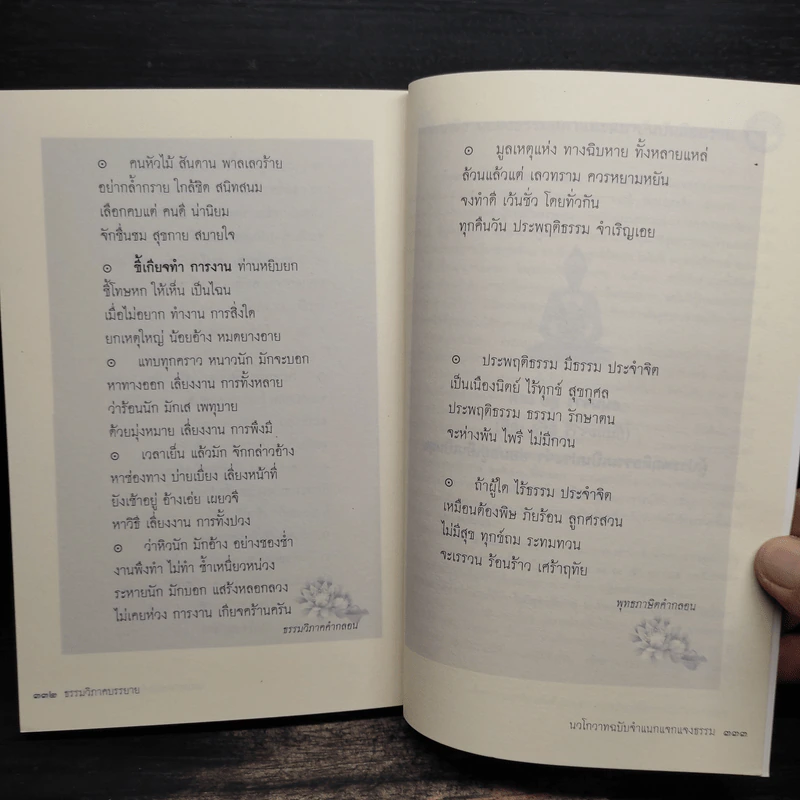 ๏ คนหัวไม้ สันดาน พาลเลวร้าย
อย่ากล้ำกราย ใกล้ชิด สนิทสนม
เลือกคบแต่ คนดี น่านิยม
จักชื่นชม สุขกาย สบายใจ
๏ ขี้เกียจทำ การงาน ท่านหยิบยก
ชี้โทษหก ให้เห็น เป็นไฉน
เมื่อไม่อยาก ทำงาน การสิ่งใด
ยกเหตุใหญ่ น้อยอ้าง หมดยางอาย
๏ แทบทุกคราว หนาวนัก มักจะบอก
หาทางออก เลี่ยงงาน การทั้งหลาย
ว่าร้อนนัก มักเส เพทุบาย
ด้วยมุ่งหมาย เลี่ยงงาน การพึงมี
๏ เวลาเย็น แล้วมัก จักกล่าวอ้าง
หาช่องทาง บ่ายเบี่ยง เลี่ยงหน้าที่
ยังเช้าอยู่ อ้างเอ่ย เผยวจี
หาวิธี เลี่ยงงาน การทั้งปวง
๏ ว่าหิวนัก มักอ้าง อย่างซองซ้ำ
งานพึงทำ ไม่ทำ ซ้ำเหนี่ยวหน่วง
ระหายนัก มักบอก แสร้งหลอกลวง
ไม่เคยห่วง การงาน เกียจคร้านครัน
ธรรมวิภาคคำกลอน
๓๓๒ ธรรมวิภาคบรรยาย
๏ มูลเหตุแห่ง ทางฉิบหาย ทั้งหลายแหล่
ล้วนแล้วแต่ เลวทราม ควรหยามหยัน
จงทำดี เว้นชั่ว โดยทั่วกัน
ทุกคืนวัน ประพฤติธรรม จำเริญเอย
๏ ประพฤติธรรม มีธรรม ประจำจิต
เป็นเนืองนิตย์ ไร้ทุกข์ สุขกุศล
ประพฤติธรรม ธรรมา รักษาตน
จะห่างพ้น ไพรี ไม่มีกวน
๏ ถ้าผู้ใด ไร้ธรรม ประจำจิต
เหมือนต้องพิษ ภัยร้อน ถูกศรสวน
ไม่มีสุข ทุกข์ถม ระทมทวน
จะเรรวน ร้อนร้าว เศร้าฤทัย
พุทธภาษิตคำกลอน
นวโกวาทฉบับจำแนกแจกแจงธรรม ๓๓๓